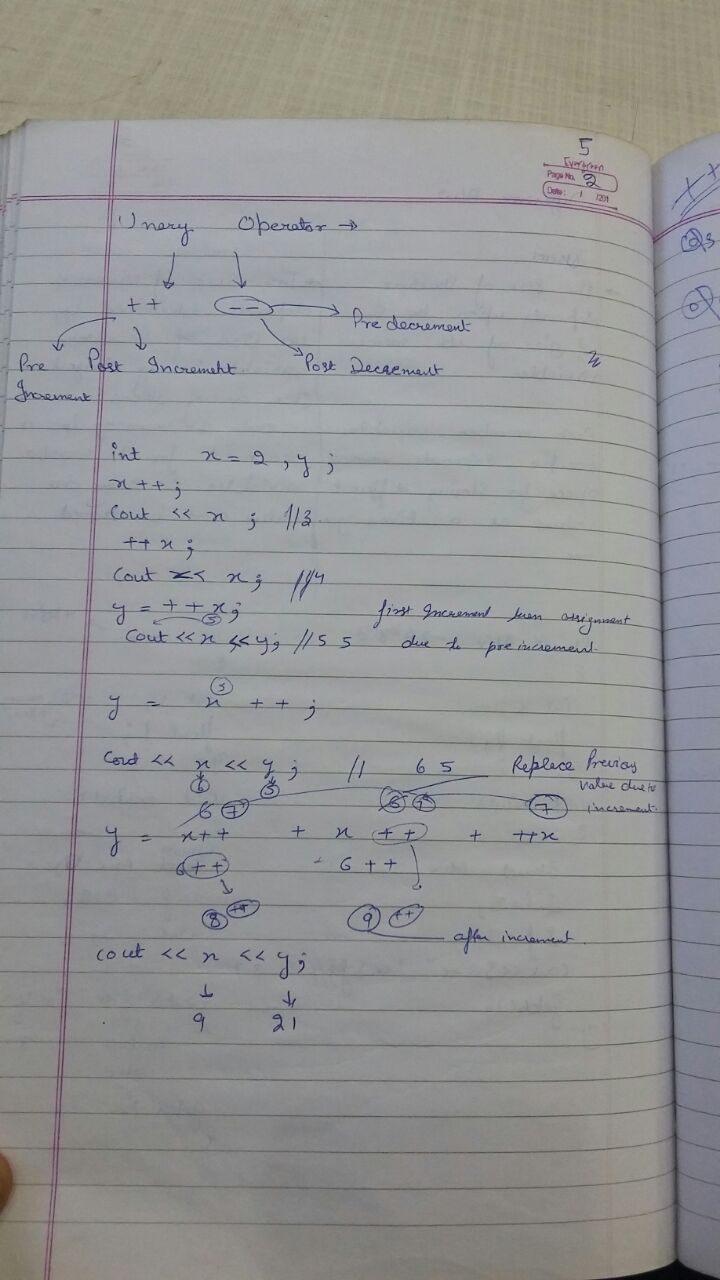 5
Evergreen
Page No. 2
Date: / /201
Unary Operator →
++ --
Pre decrement
Pre Post Increment Post Decrement
Increment
int x = 2 , y ;
x++;
Cout << x ; //3
++x;
Cout << x; //4
y = ++x; first Increment then assignment
5
Cout << x << y; //5 5 due to preincrement.
5
y = x ++ ;
Cout << x << y ; // 6 5 Replace Previous
6 5 value due to
6 7 7 increment.
y = x++ + x ++ + ++x
6++ 6++
8 ++ 9 ++ after increment.
cout << x << y;
9 21